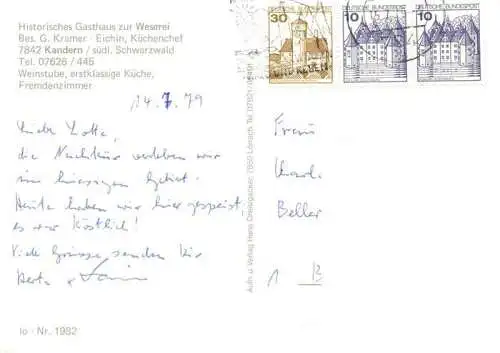 Historisches Gasthaus zur Weserei
Bes. G. Kramer - Eichin, Küchenchef
7842 Kandern / südl. Schwarzwald
Tel. 07626 / 445
Weinstube, erstklassige Küche,
Fremdenzimmer
14.7.79
Liebe Lotte,
die Nachkur verleben wir
im hiesigen Gebiet.
Heute haben wir hier gespeist,
es war köstlich!
Viele Grüsse senden Dir
Herta
Io - Nr. 1982
Aufn. u. Verlag Hans
7850 Lörrach Tel. 07621
30
10
DEUTSCHE BUNDESPOST
10
DEUTSCHE BUNDESPOST
Frau
Charl.
Beller
1 B